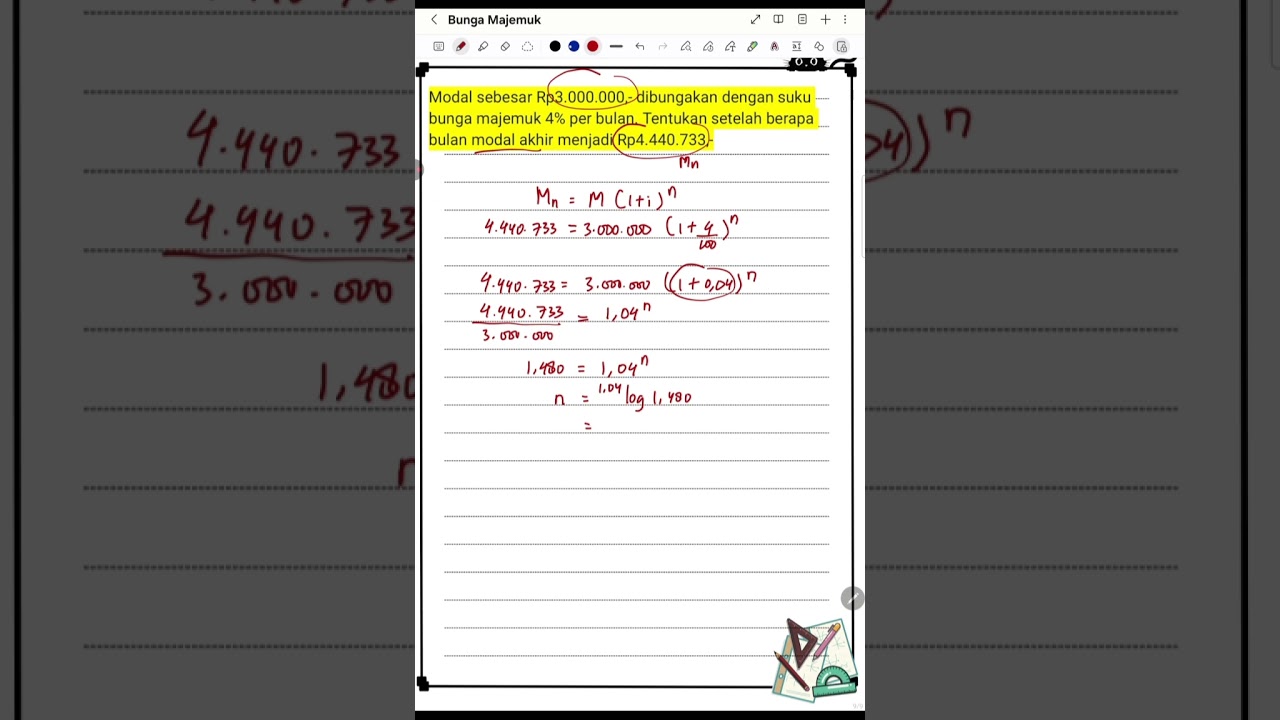 Bunga Majemuk
Modal sebesar Rp3.000.000,- dibungakan dengan suku
bunga majemuk 4% per bulan. Tentukan setelah berapa
bulan modal akhir menjadi Rp4.440.733,-
Mn
Mn = M (1+i)^n
4.440.733 = 3.000.000 (1 + 4/100)^n
4.440.733 = 3.000.000 ((1 + 0,04))^n
4.440.733 / 3.000.000 = 1,04^n
1,480 = 1,04^n
n = ^1,04 log 1,480
=
4.440.733
4.440.733
3.000.000
1,480
n
04))^n
9/9